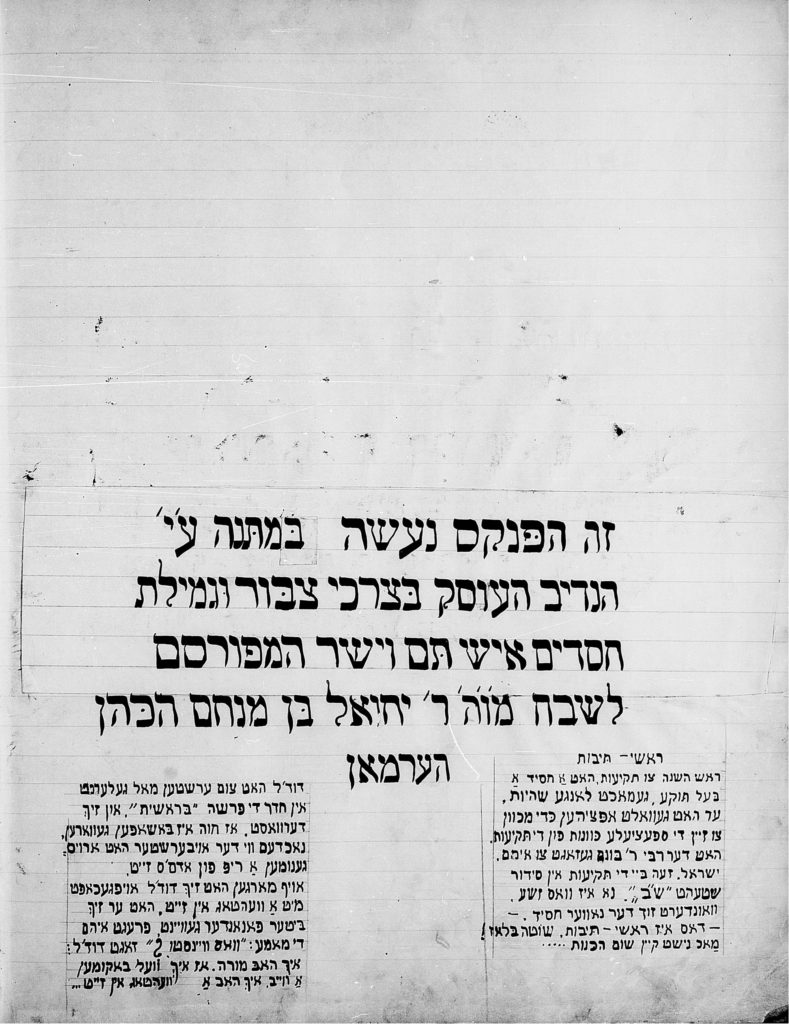 זה הפנקס נעשה במתנה ע״י
הנדיב העוסק בצרכי צבור וגמילת
חסדים איש תם וישר המפורסם
לשבח מו״ה ר׳ יחיאל בן מנחם הכהן
הערמאן
ראשי־תיבות
ראש השנה צו תקיעות, האט אַ חסיד אַ
בעל תוקע, געמאכט לאנגע שהיות,
ער האט געוואלט אפציהען כדי מכוון
צו זיין די ספעציעלע כוונות פין די תקיעות.
האט דער רבי ר׳ בונם געזאגט צו איהם.
ישראל. זעה ביי די תקיעות אין סידור
שטעהט ״ש״ב״. נא איז וואס זשע.
וואונדערט זיך דער גאווער חסיד. —
— דאס איז ראשי־תיבות. שוטה בלאז!
מאכ נישט קיין שום הכנות .....
דוד׳ל האט צום ערשטען מאל געלערנט
אין חדר די פרשה ״בראשית״, און זיך
דערוואסט, אז חוה איז באשאפען געווארען,
נאכדעם ווי דער אויבערשטער האט ארויס
גענומען אַ ריפ פון אדם׳ס זייט.
אויף מארגען האט זיך דוד׳ל אויפגעכאפט
מיט אַ וועהטאג אין זייט, האט ער זיך
ביטער פאנאנדער געוויינט, פרעגט איהם
די מאמע: ״וואס וויינסטו?״ זאגט דוד׳ל:
איך האב מורה. אז איך וועל באקומען
אַ ווייב, איך האב אַ וועהטאג אין זייט...